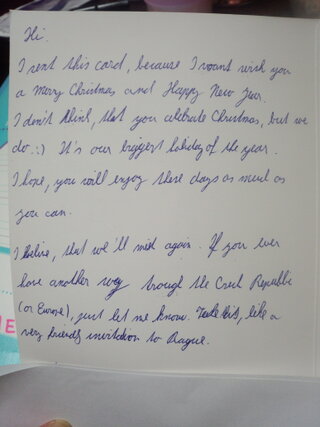 Hi.
I sent this card, because I want wish you
a Merry Christmas and Happy New Year.
I don't think, that you celebrate Christmas, but we
do. :) It's our biggest holiday of the year.
I hope, you will enjoy these days as much as
you can.
I belive, that we'll meet again. If you ever
have another way trough the Czech Republic
(or Europe), just let me know. Take this, like a
very friendly invitation to Prague.